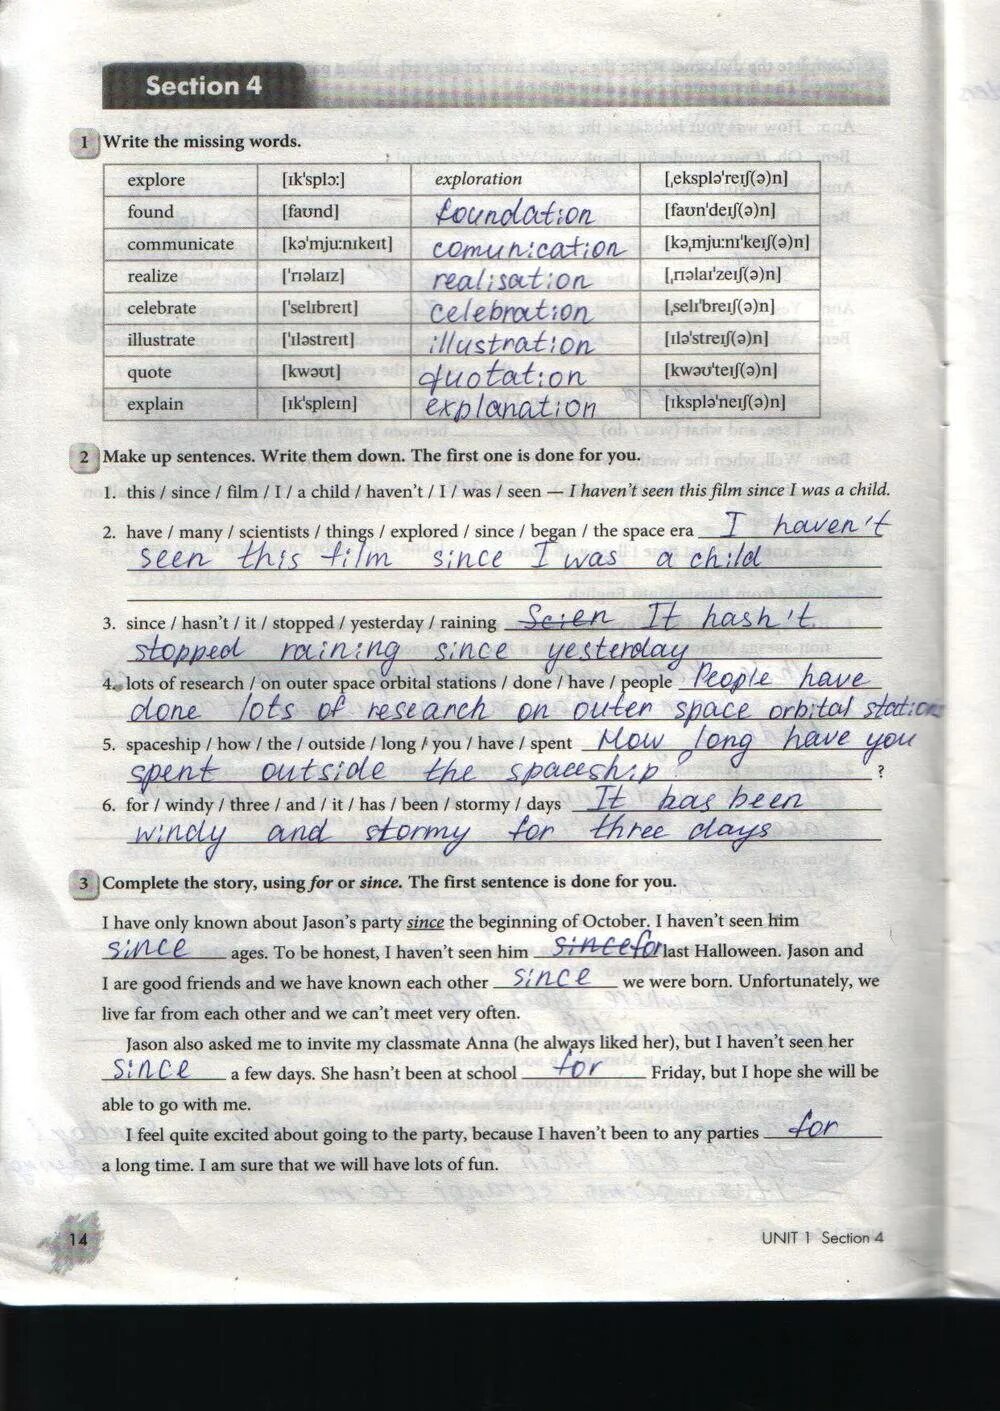 Section 4
1 Write the missing words.
explore [ɪk'splɔ:] exploration [ˌeksplə'reɪʃ(ə)n]
found [faʊnd] foundation [faʊn'deɪʃ(ə)n]
communicate [kə'mju:nɪkeɪt] comunication [kəˌmju:nɪ'keɪʃ(ə)n]
realize ['rɪəlaɪz] realisation [ˌrɪəlaɪ'zeɪʃ(ə)n]
celebrate ['selɪbreɪt] celebration [ˌselɪ'breɪʃ(ə)n]
illustrate ['ɪləstreɪt] illustration [ɪlə'streɪʃ(ə)n]
quote [kwəʊt] quotation [kwəʊ'teɪʃ(ə)n]
explain [ɪk'spleɪn] explanation [ɪksplə'neɪʃ(ə)n]
2 Make up sentences. Write them down. The first one is done for you.
1. this / since / film / I / a child / haven't / I / was / seen — I haven't seen this film since I was a child.
2. have / many / scientists / things / explored / since / began / the space era I haven't
seen this film since I was a child
3. since / hasn't / it / stopped / yesterday / raining Scien It hash't
stopped raining since yesterday
4. lots of research / on outer space orbital stations / done / have / people People have
done lots of research on outer space orbital stations
5. spaceship / how / the / outside / long / you / have / spent How long have you
spent outside the spaceship? ?
6. for / windy / three / and / it / has / been / stormy / days It has been
windy and stormy for three days
3 Complete the story, using for or since. The first sentence is done for you.
I have only known about Jason's party since the beginning of October. I haven't seen him
since ages. To be honest, I haven't seen him since for last Halloween. Jason and
I are good friends and we have known each other since we were born. Unfortunately, we
live far from each other and we can't meet very often.
Jason also asked me to invite my classmate Anna (he always liked her), but I haven't seen her
since a few days. She hasn't been at school for Friday, but I hope she will be
able to go with me.
I feel quite excited about going to the party, because I haven't been to any parties for
a long time. I am sure that we will have lots of fun.
14
UNIT 1 Section 4